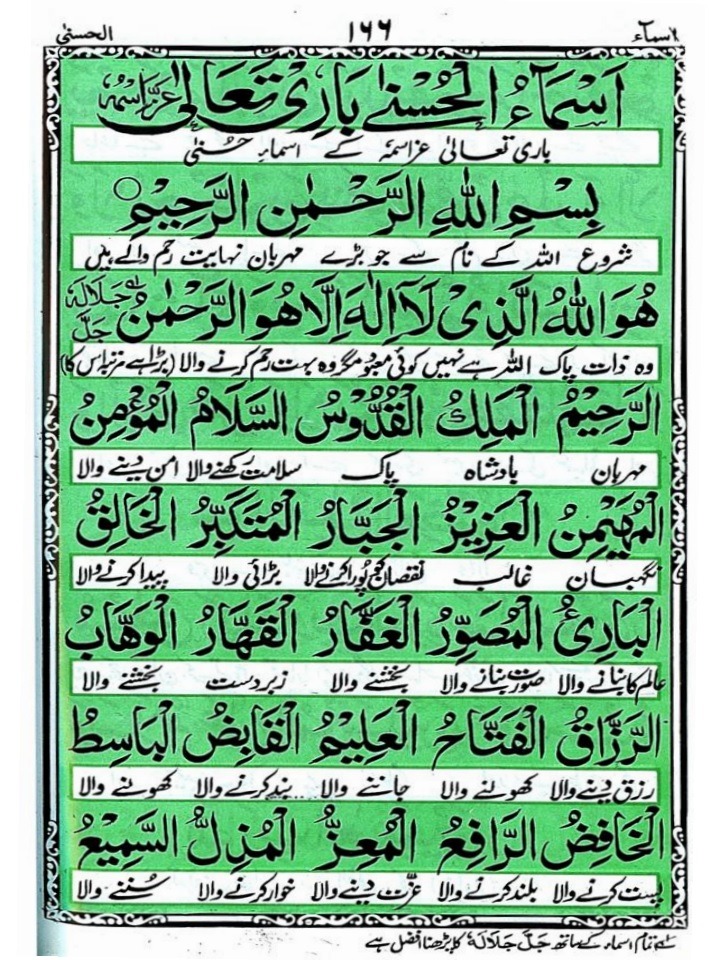 اسمآء ۱۶۶ الحسنیٰ
اَسْمَآءُ الْحُسْنٰے بَارِیْ تَعَالیٰ عَزَّ اِسْمُهٗ
باری تعالیٰ عز اسمہٗ کے اسماءِ حُسنیٰ
بِسْمِ اللّٰهِ الرَّحْمٰنِ الرَّحِيْمِ ○
شروع اللہ کے نام سے جو بڑے مہربان نہایت رحم والے ہیں
هُوَ اللّٰهُ الَّذِیْ لَاۤ اِلٰهَ اِلَّا هُوَ الرَّحْمٰنُ جَلَّ جَلَالُهٗ
وہ ذات پاک اللہ ہے نہیں کوئی معبود مگر وہ بہت رحم کرنے والا (بڑا ہے مرتبہ اس کا)
الرَّحِيْمُ الْمَلِكُ الْقُدُّوْسُ السَّلَامُ الْمُؤْمِنُ
مہربان بادشاہ پاک سلامت رکھنے والا امن دینے والا
الْمُهَيْمِنُ الْعَزِيْزُ الْجَبَّارُ الْمُتَكَبِّرُ الْخَالِقُ
نگہبان غالب نقصان کو پورا کرنے والا بڑائی والا پیدا کرنے والا
الْبَارِئُ الْمُصَوِّرُ الْغَفَّارُ الْقَهَّارُ الْوَهَّابُ
عالم کا بنانے والا صورت بنانے والا بخشنے والا زبردست بخشنے والا
الرَّزَّاقُ الْفَتَّاحُ الْعَلِيْمُ الْقَابِضُ الْبَاسِطُ
رزق دینے والا کھولنے والا جاننے والا بند کرنے والا کھولنے والا
الْخَافِضُ الرَّافِعُ الْمُعِزُّ الْمُذِلُّ السَّمِيْعُ
پست کرنے والا بلند کرنے والا عزّت دینے والا خوار کرنے والا سُننے والا
تمام اسماء کے ساتھ جَلَّ جَلَالُهٗ کا پڑھنا افضل ہے